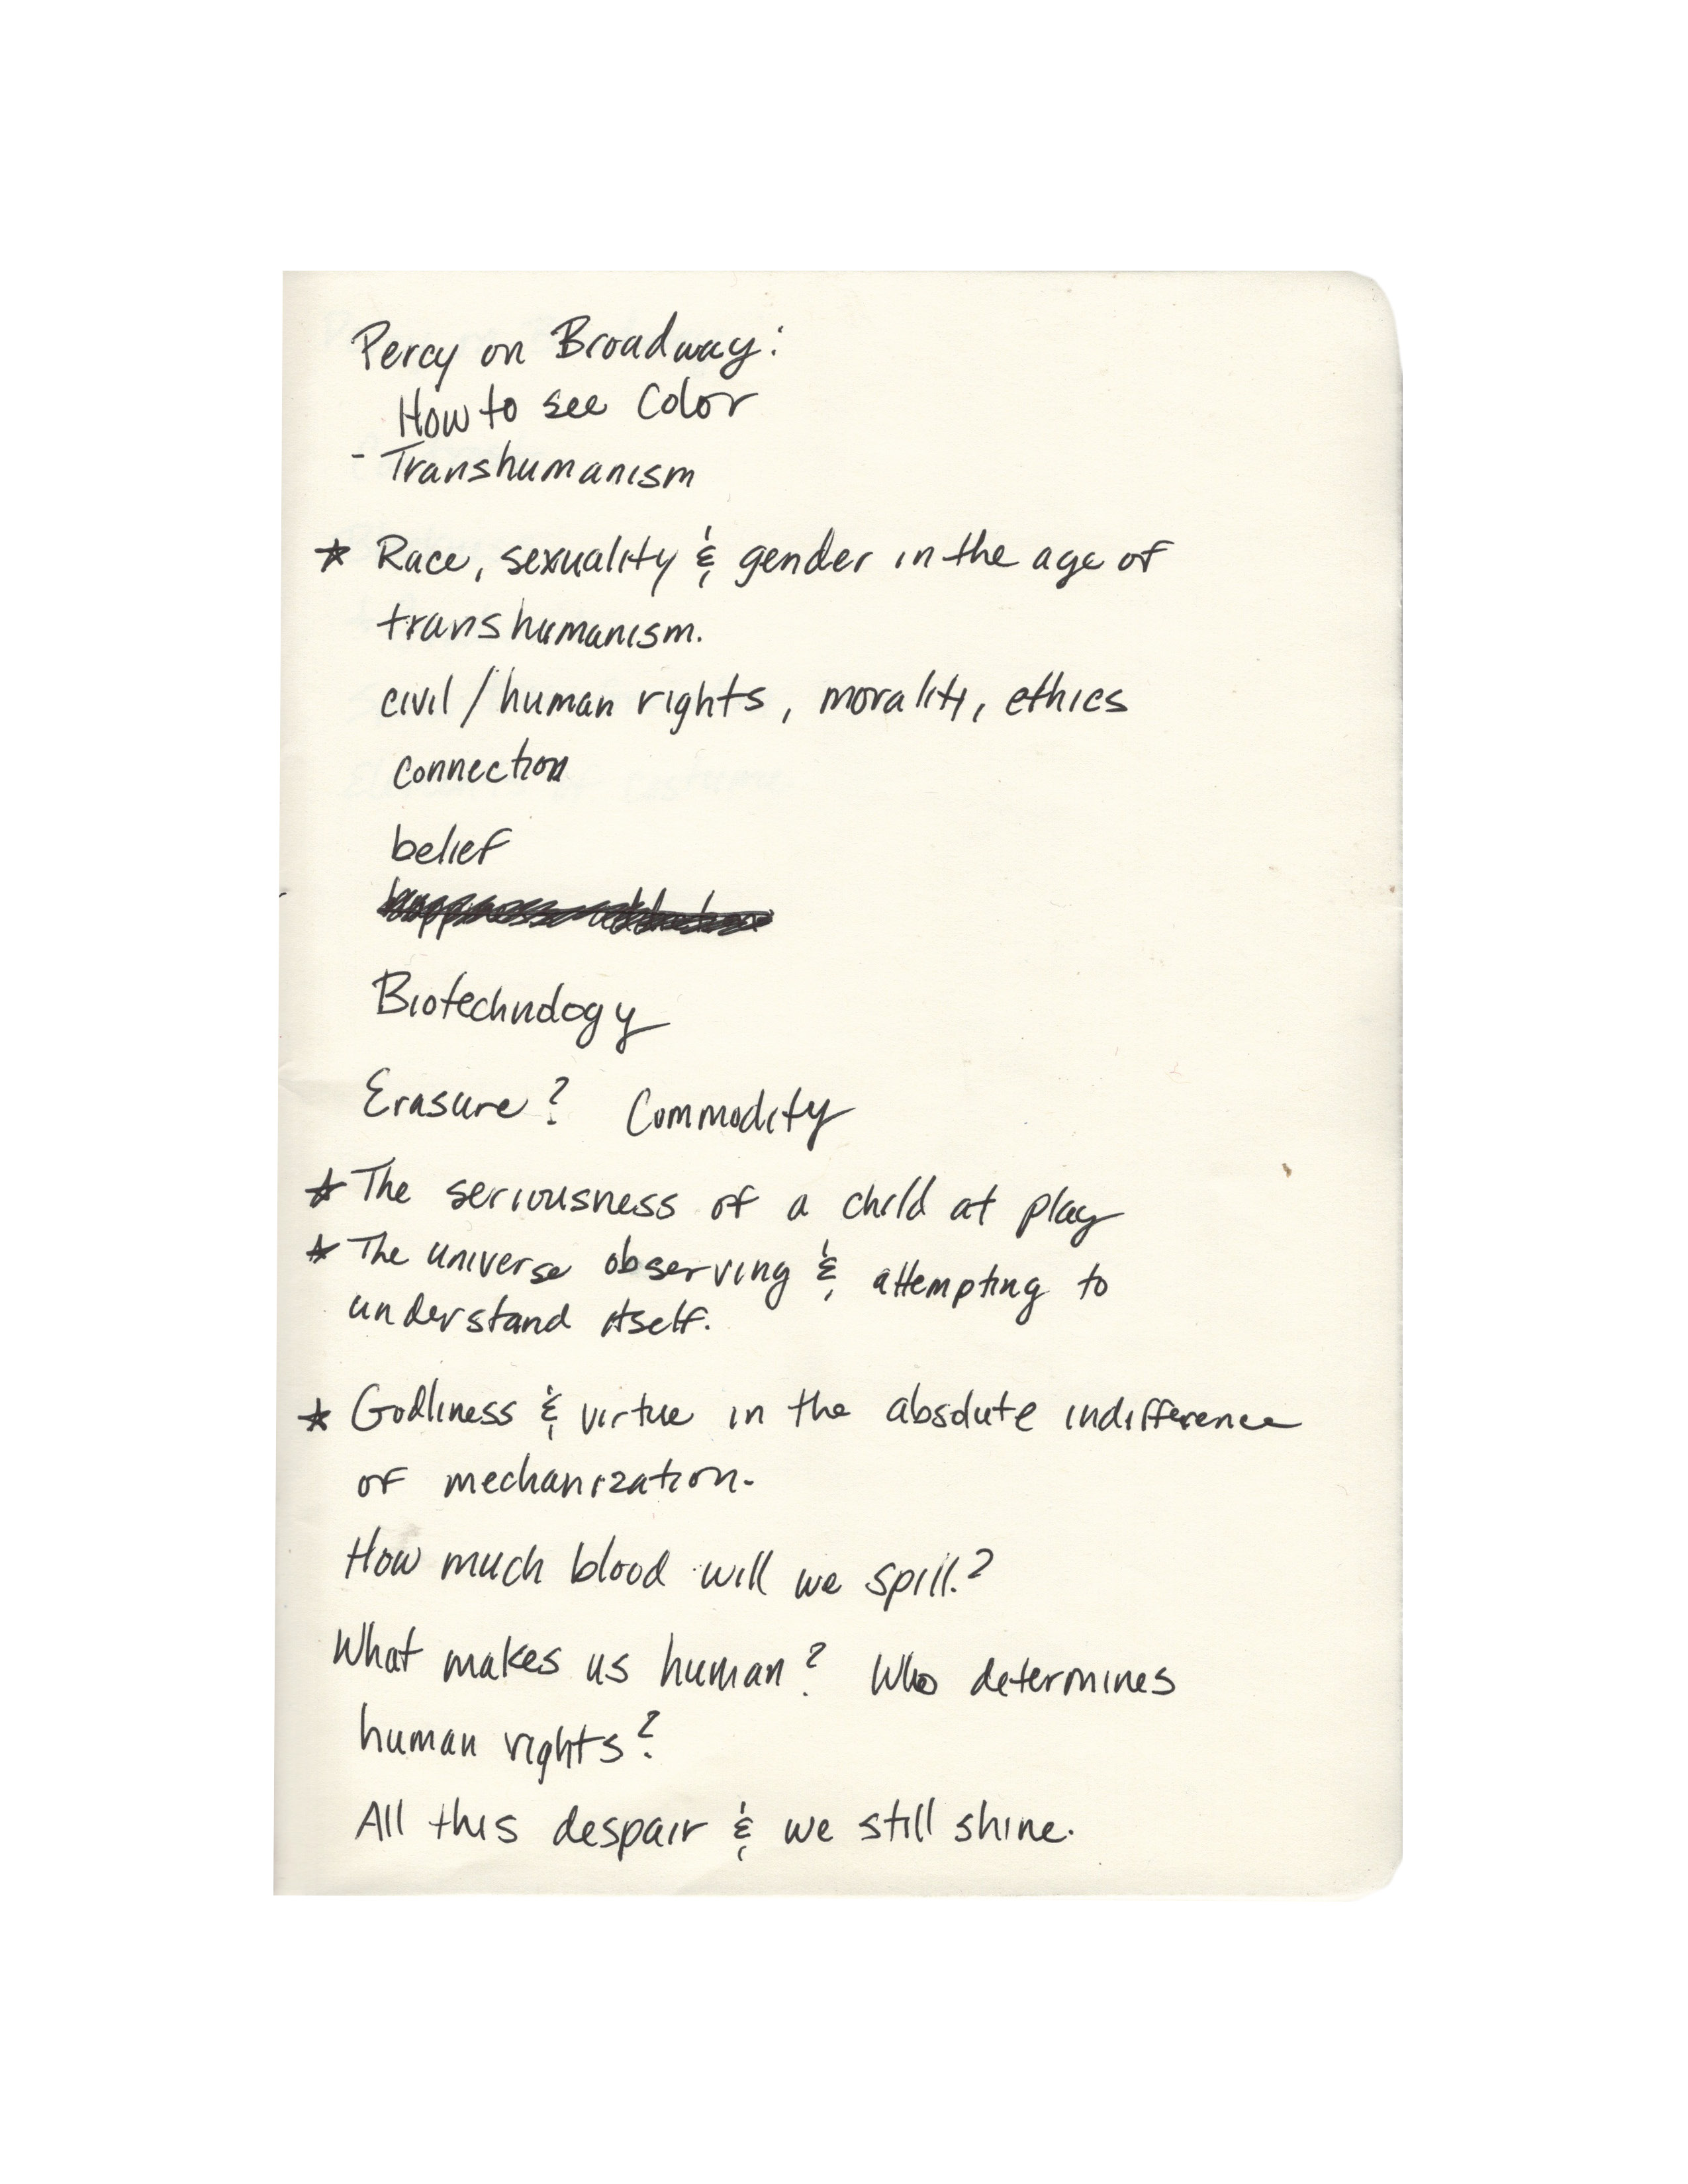 Percy on Broadway:
How to see Color
- Transhumanism
★ Race, sexuality & gender in the age of
transhumanism.
civil / human rights, morality, ethics
connection
belief
Biotechnology
Erasure? Commodity
★ The seriousness of a child at play
★ The universe observing & attempting to
understand itself.
★ Godliness & virtue in the absolute indifference
of mechanization.
How much blood will we spill?
What makes us human? Who determines
human rights?
All this despair & we still shine.